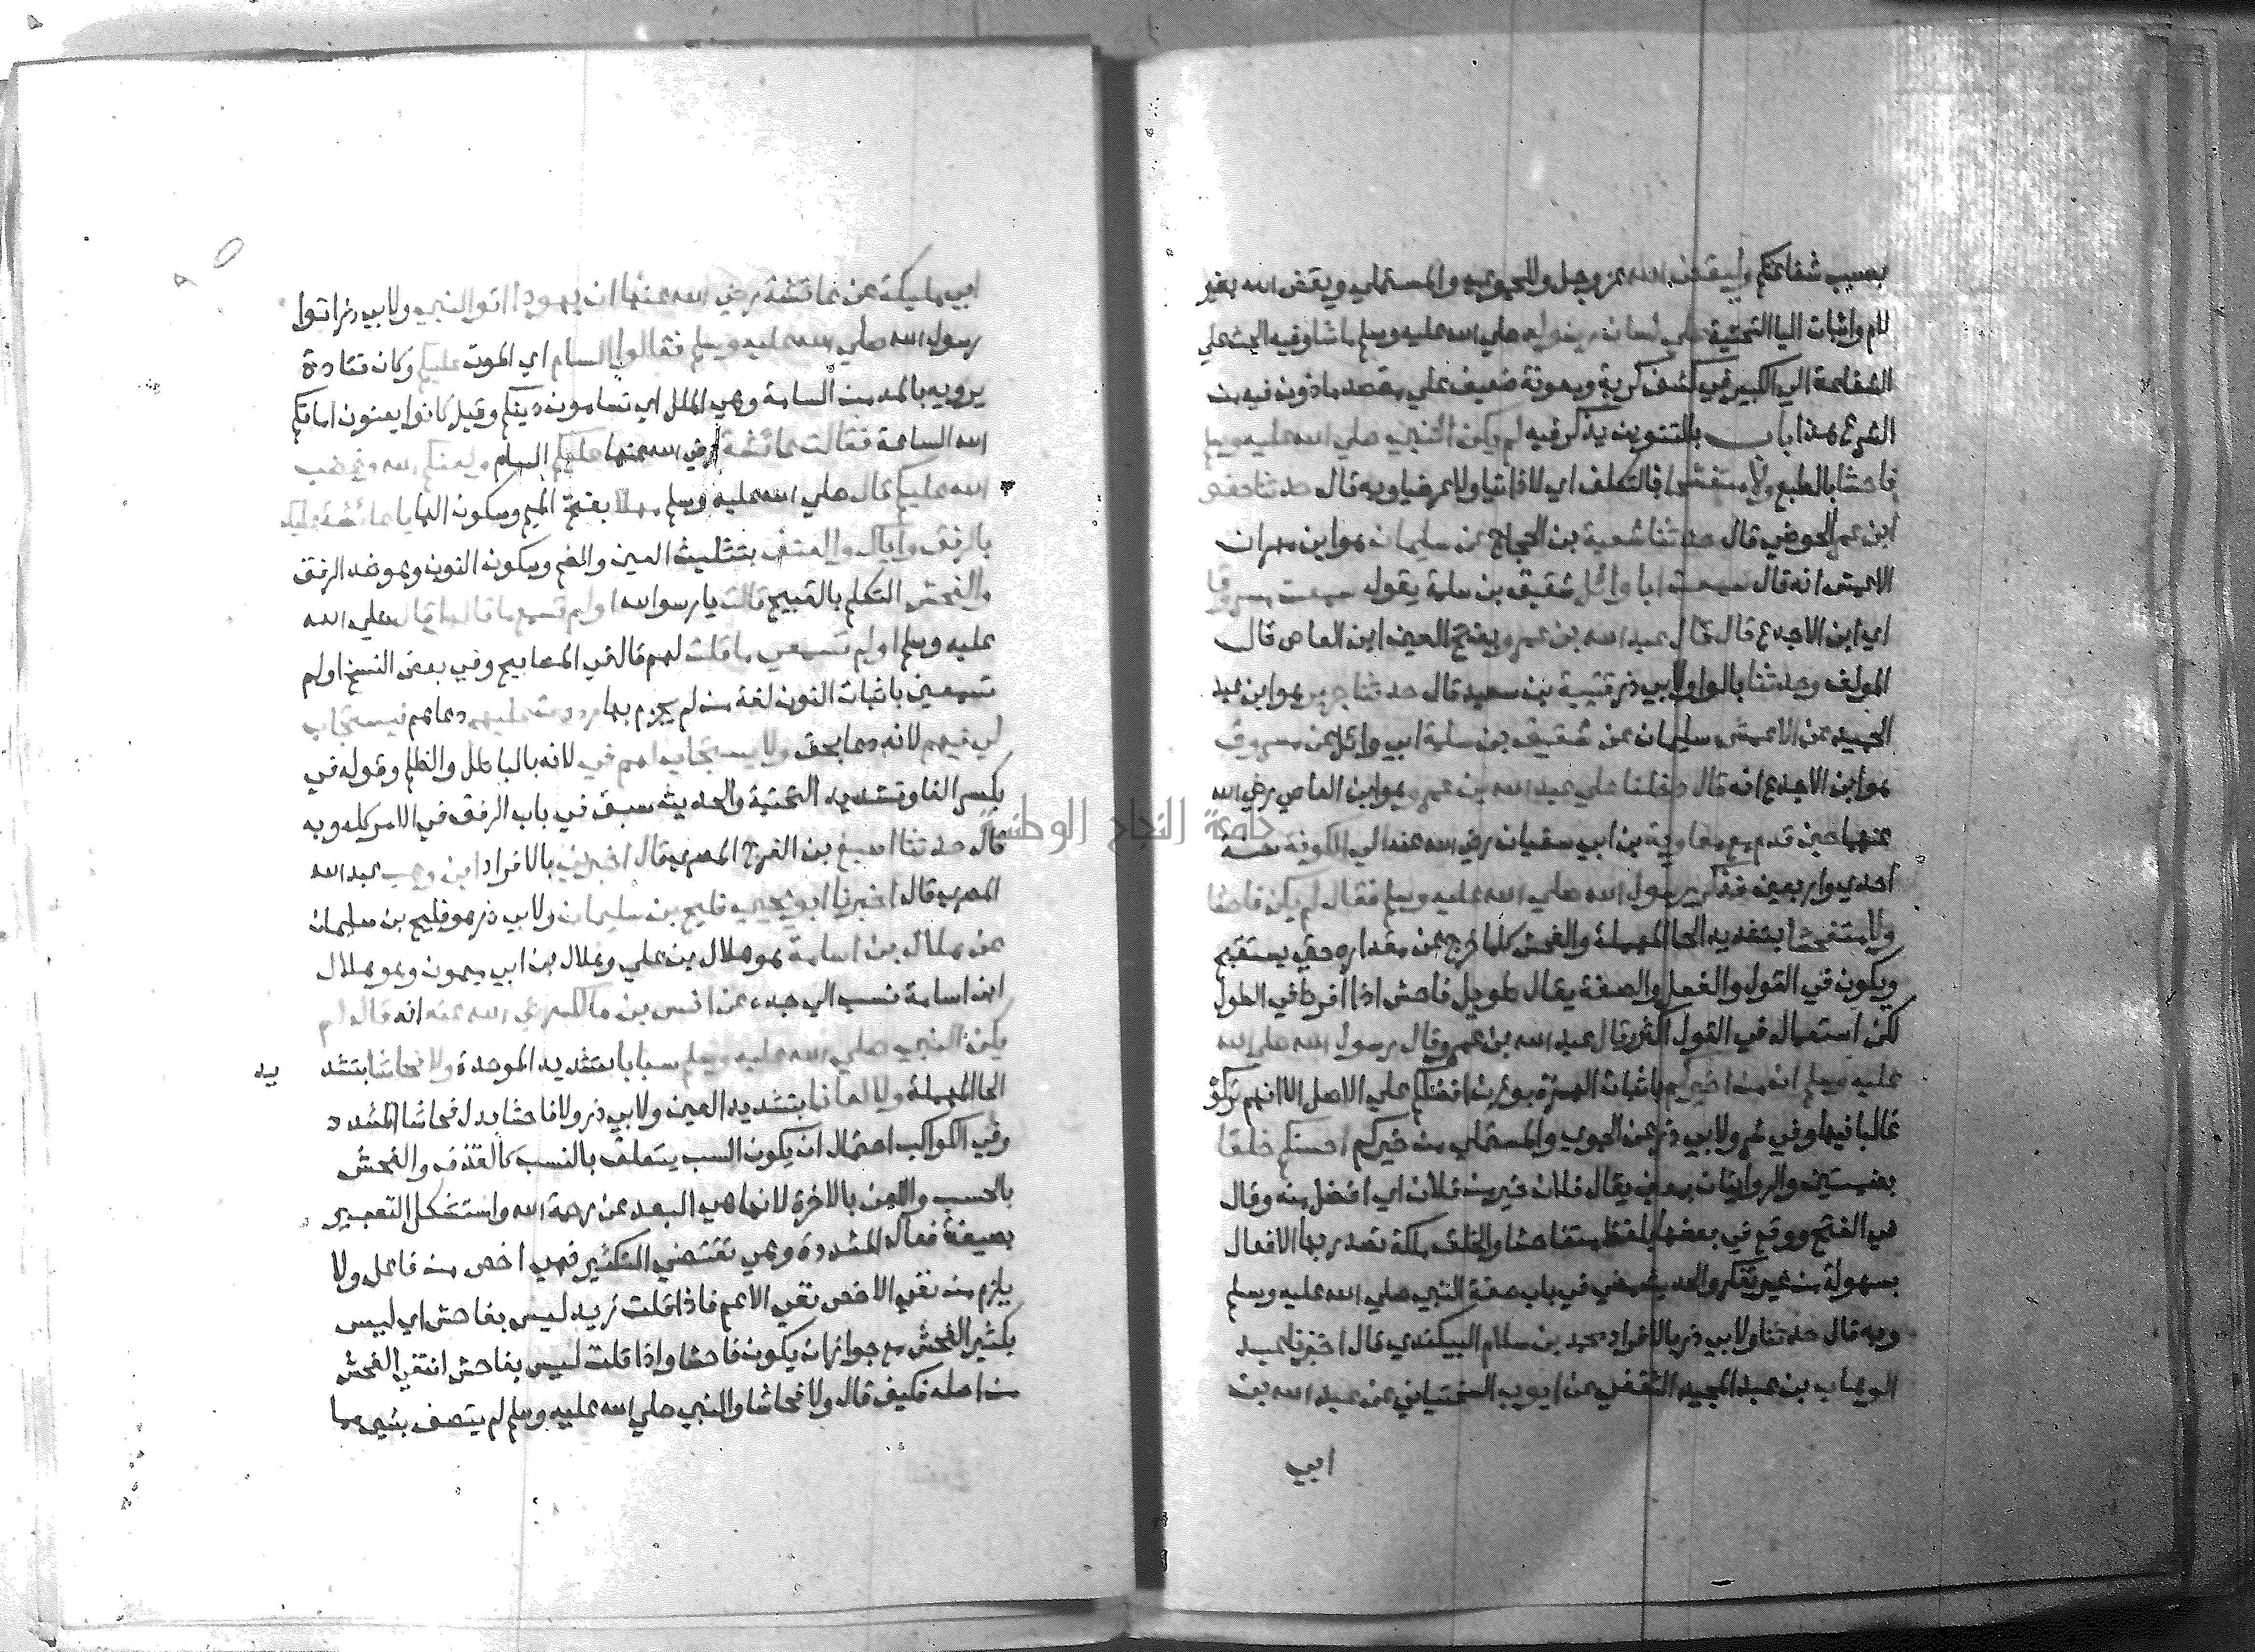 بسبب شفاعتكم وليقض الله عز وجل وللحموي والمستملي ويقض الله بغير
لام واثبات اليا التحتية علي لسان رسوله صلي الله عليه وسلم ما شا وفيه الحث علي
الشفاعة الي الكبير في كشف كربة ومعونة ضعيف علي مقصد ماذون فيه من
الشرع هذا باب بالتنوين يذكر فيه لم يكن النبي صلي الله عليه وسلم
فاحشا بالطبع ولا متفحشا بالتكلف اي لا ذاتيا ولا عرضيا وبه قال حدثنا حفص
ابن عمر الحوضي قال حدثنا شعبة بن الحجاج عن سليمان هو ابن مهران
الاعمش انه قال سمعت ابا وائل شقيق بن سلمة يقول سمعت مسروقا
اي ابن الاجدع قال قال عبد الله بن عمرو بفتح العين ابن العاص قال
المولف وحدثنا بالواو ولابي ذر قتيبة بن سعيد قال حدثنا جرير هو ابن عبد
الحميد عن الاعمش سليمان عن شقيق بن سلمة ابي وائل عن مسروق
هو ابن الاجدع انه قال دخلنا علي عبد الله بن عمرو هو ابن العاص رضي الله
عنهما حين قدم مع معاوية بن ابي سفيان رضي الله عنه الي الكوفة سنة
احدي واربعين فذكر رسول الله صلي الله عليه وسلم فقال لم يكن فاحشا
ولا متفحشا بتشديد الحا المهملة والفحش كلما خرج عن مقداره حتي يستقبح
ويكون في القول والفعل والصفة يقال طويل فاحش اذا افرط في الطول
لكن استعماله في القول اكثر وقال عبد الله بن عمرو قال رسول الله صلي الله
عليه وسلم ان من اخيركم باثبات الهمزة بوزن افضلكم علي الاصل الا انهم تركوا
غالبا فيها وفي شر ولابي ذر عن الحموي والمستملي من خيركم احسنكم خلقا
بضمتين والروايتان بمعني يقال فلان خير من فلان اي افضل منه وقال
في الفتح ووقع في بعضها بلفظ متفاحشا والخلق ملكة تصدر بها الافعال
بسهولة من غير تفكر والحديث مضي في باب صفة النبي صلي الله عليه وسلم
وبه قال حدثنا ولابي ذر بالافراد محمد بن سلام البيكندي قال اخبرنا عبد
الوهاب بن عبد المجيد الثقفي عن ايوب السختياني عن عبد الله بن
ابي
ابي مليكة عن عائشة رضي الله عنها ان يهودا اتوا النبي ولابي ذر اتوا
رسول الله صلي الله عليه وسلم فقالوا السام اي الموت عليكم وكان قتادة
يرويه بالمد من السامة وهي الملل اي تسامون دينكم وقيل كانوا يعنون اماتكم
الله الساعة فقالت عائشة رضي الله عنها عليكم السام ولعنكم الله وغضب
الله عليكم قال صلي الله عليه وسلم مهلا بفتح الميم وسكون الها يا عائشة عليك
بالرفق واياك والعنف بتثليث العين والضم وسكون النون وهو ضد الرفق
والفحش التكلم بالقبيح قالت يا رسول الله اولم تسمع ما قالوا قال صلي الله
عليه وسلم اولم تسمعي ما قلت لهم قال في المصابيح وفي بعض النسخ اولم
تسمعين باثبات النون لغة من لم يجزم بها رددت عليهم دعاهم فيستجاب
لي فيهم لانه دعا بحق ولا يستجاب لهم في لانه بالباطل والظلم وقوله في
بكسر الفا وتشديد التحتية والحديث سبق في باب الرفق في الامر كله وبه
قال حدثنا اصبغ بن الفرج المصري قال اخبرني بالافراد ابن وهب عبد الله
المصري قال اخبرنا ابو يحيي فليح بن سليمان ولابي ذر هو فليح بن سليمان
عن هلال بن اسامة هو هلال بن علي وهلال بن ابي ميمون وهو هلال
ابن اسامة نسب الي جده عن انس بن مالك رضي الله عنه انه قال لم
يكن النبي صلي الله عليه وسلم سبابا بتشديد الموحدة ولا فحاشا بتشد
يد
الحا المهملة ولا لعانا بتشديد العين ولابي ذر ولا فاحشا بدل فحاشا المشدد
وفي الكواكب احتمال ان يكون السب يتعلق بالنسب كالقذف والفحش
بالحسب واللعن بالاخرة لانها هي البعد عن رحمة الله واستشكل التعبير
بصيغة فعال المشددة وهي تقتضي التكثير فهي اخص من فاعل ولا
يلزم من نفي الاخص نفي الاعم فاذا قلت زيد ليس بفاحش اي ليس
بكثير الفحش مع جواز ان يكون فاحشا واذا قلت ليس بفاحش انتفي الفحش
من اصله فكيف قال ولا فحاشا والنبي صلي الله عليه وسلم لم يتصف بشي مما
جامعة النجاح الوطنية